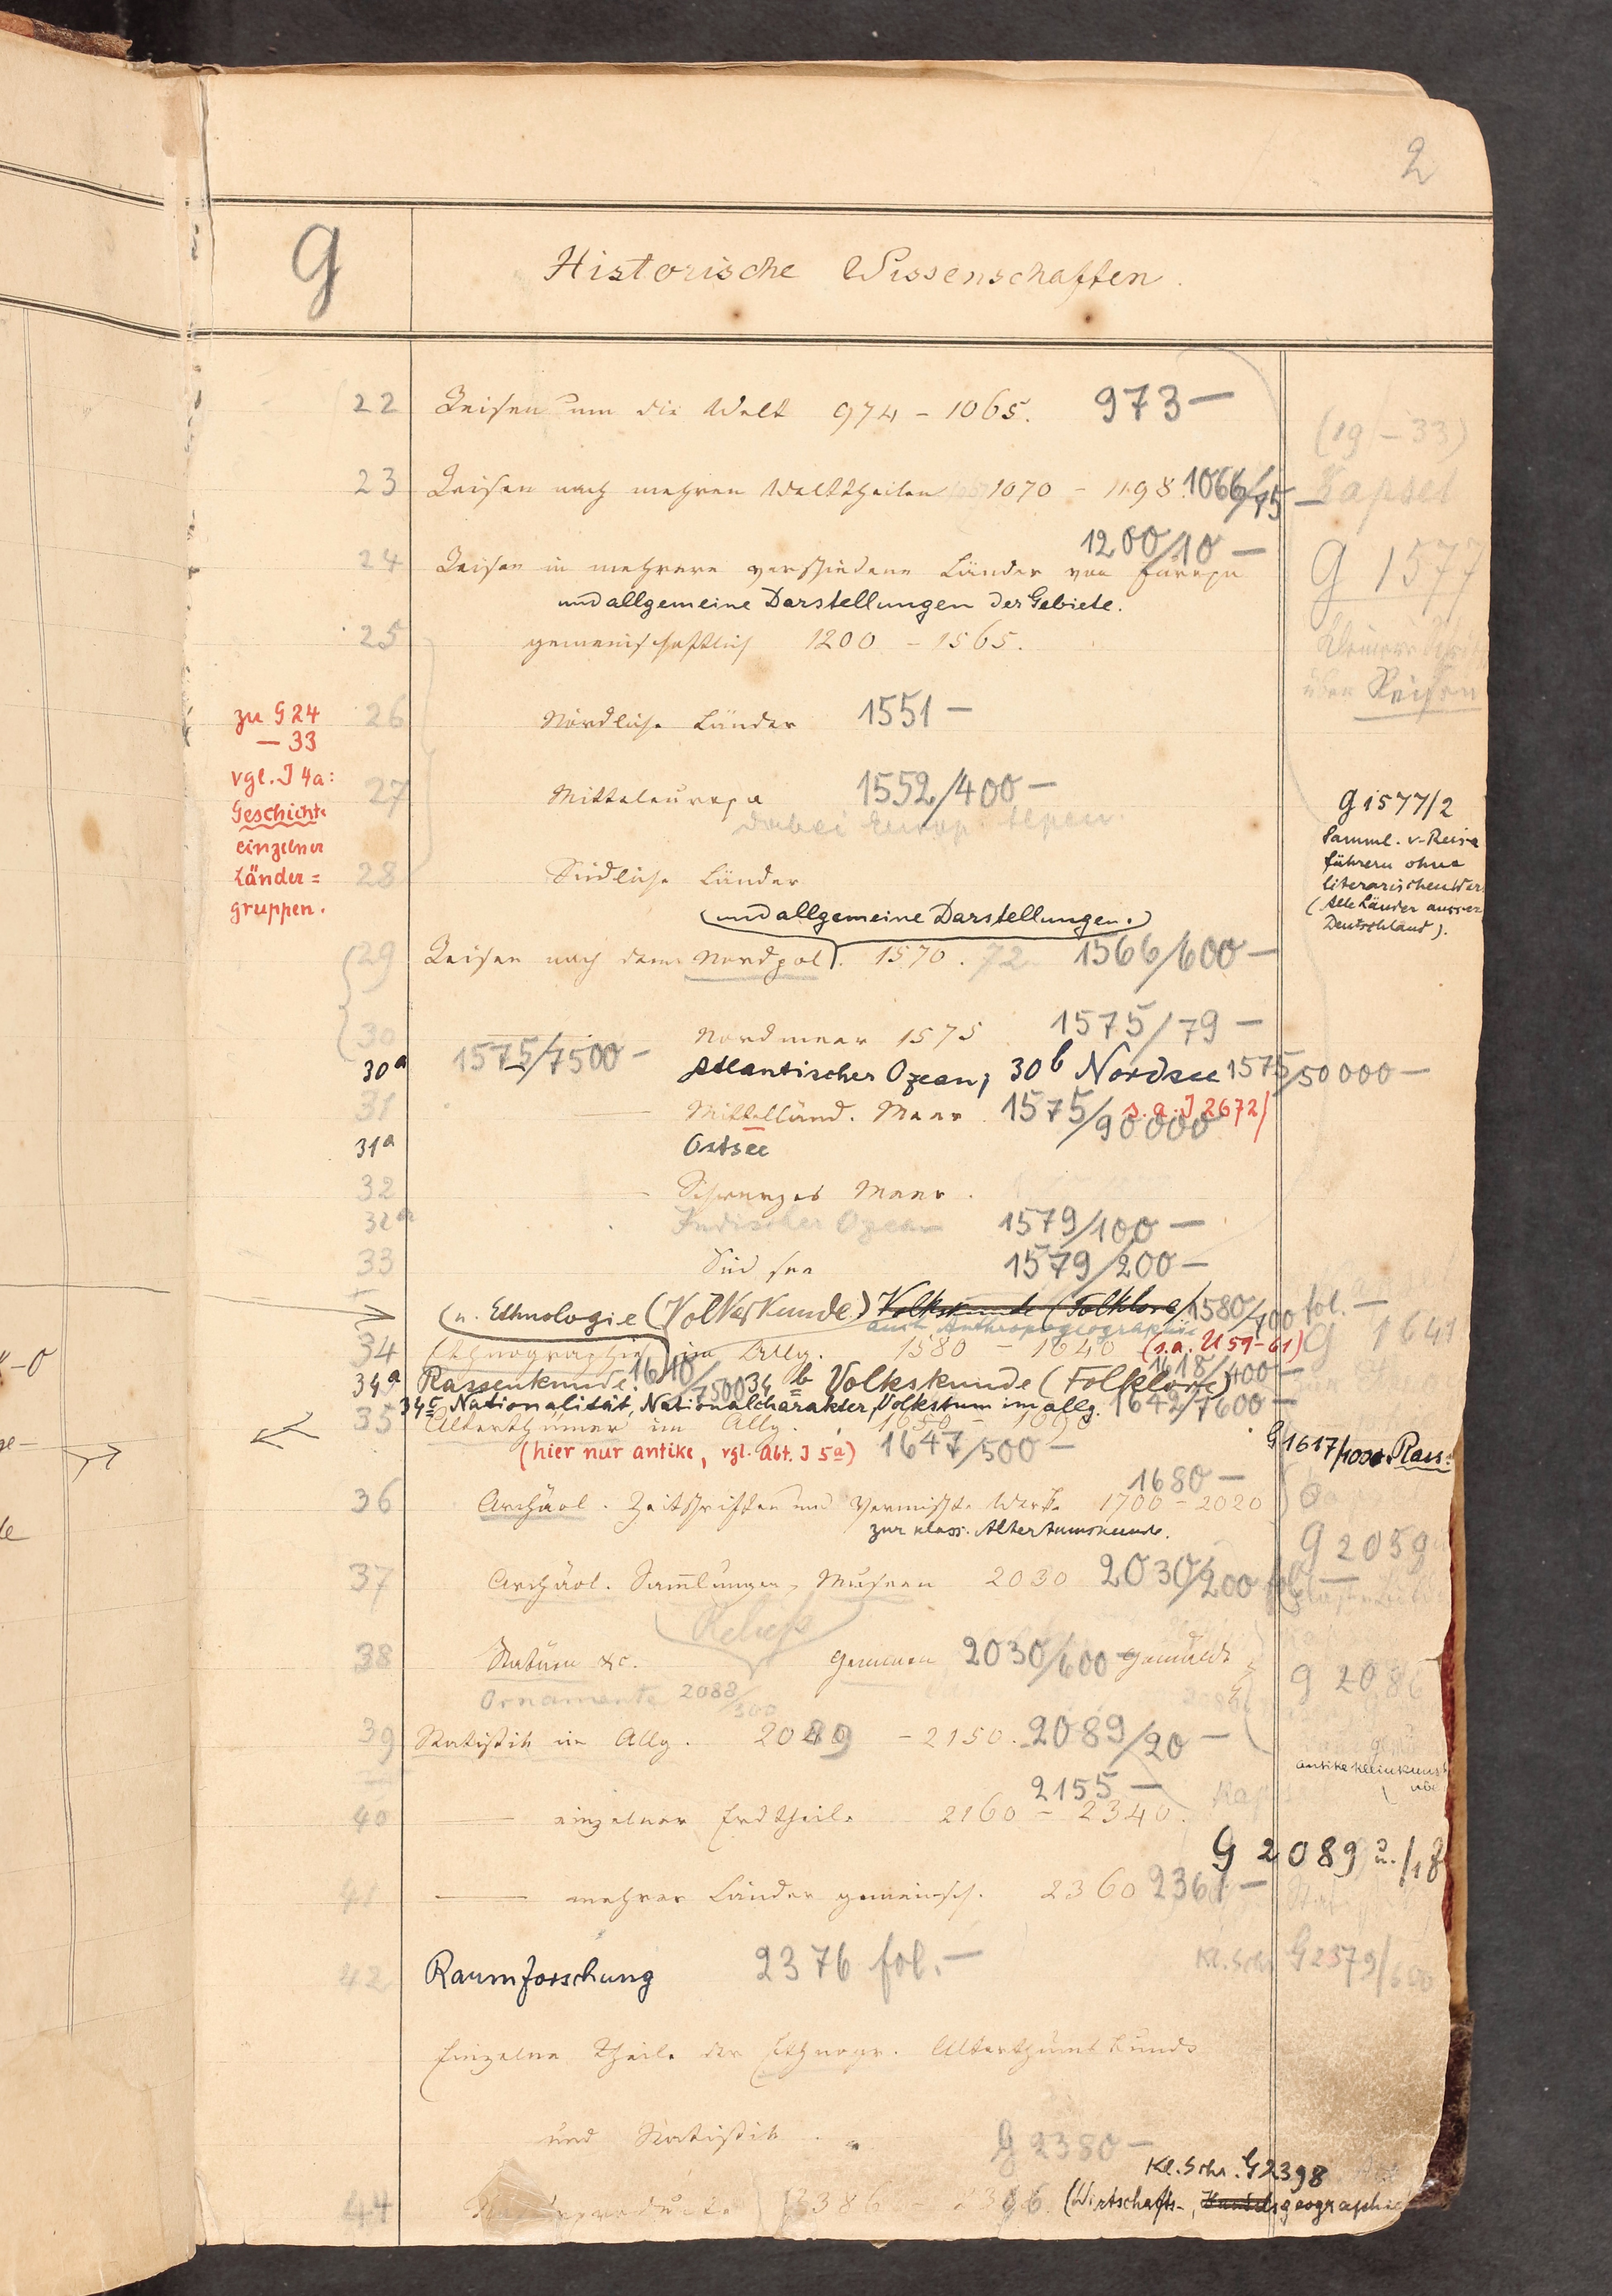 2
G
Historische Wissenschaften.
22 Reisen um die Welt 974 – 1065. 973 –
(19 – 33)
23 Reisen nach mehren Welttheilen 1070 – 1198. 1066/75 –
Kapsel
1200/10 –
24 Reisen in mehrere verschiedene Länder von Europa
G 1577
und allgemeine Darstellungen der Gebiete.
25 gemeinschaftlich 1200 – 1565.
über Reisen
26 Nördliche Länder 1551 –
zu G 24
– 33
vgl. J 4a:
Geschichte
einzelner
Länder=
gruppen.
27 Mitteleuropa 1552/400 –
dabei Europ. Alpen.
G 1577/2
Samml. v. Reise
führern ohne
literarischen Wer
(Alle Länder ausser
Deutschland).
28 Südliche Länder
(und allgemeine Darstellungen.)
29 Reisen nach dem Nordpol. 1570. 72 1566/600 –
30 Nordmeer 1575 1575/79 –
30a 1575/7500 – Atlantischer Ozean; 30b Nordsee 1575/50000 –
31 — Mittelländ. Meer. 1575/90000 s. a. J 2672/
31a Ostsee
32 — Schwarzes Meer.
32a Indischer Ozean 1579/100 –
33 Süd see 1579/200 –
(u. Ethnologie (Völkerkunde) Volkskunde (Folklore) 1580/700 fol. –
auch Anthropogeographie
34 Ethnographie im Allg. 1580 – 1640 (s. a. U 59–61) G 1641
34a Rassenkunde. 1610/7500 34b Volkskunde (Folklore) 1618/400 –
34c Nationalität, Nationalcharakter, Volkstum im allg. 1642/7600 –
35 Alterthümer im Allg. 1650 – 1690
(hier nur antike, vgl. Abt. J 5a) 1647/500 –
G 1617/1000 Rass.
1680 –
36 Archäol. Zeitschriften und Vermischte Werke 1700 – 2020
zur klass. Altertumskunde.
G 2059
37 Archäol. Sammlungen, Museen 2030 2030/200 fol. –
Reliefs
38 Statuen &c. Gemmen 2030/600 – Gemälde
G 2086
Ornamente 2088/300
39 Statistik im Allg. 2089 – 2150. 2089/20 –
antike Kleinkunst
2155 –
40 — einzelner Erdtheile 2160 – 2340.
G 2089 u. /18
41 — mehrer Länder gemeinsch. 2360 2361 –
42 Raumforschung 2376 fol. –
Kl. Schr. G 2379/600
Einzelne Theile der Ethnogr. Alterthumskunde
und Statistik.
G 2380 –
Kl. Schr. G 2398
44 2386 – 2396. (Wirtschafts-, Handelsgeographie